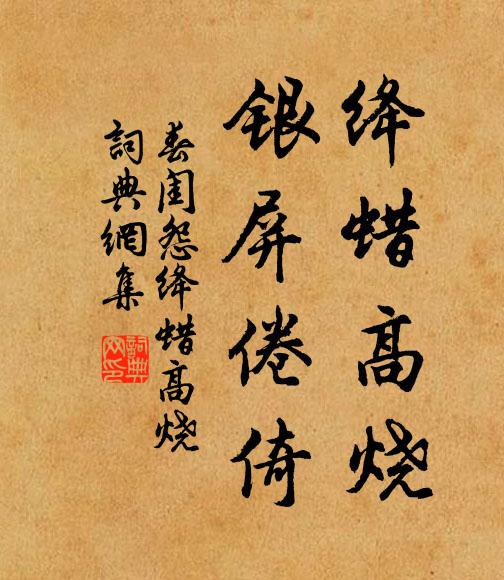 绛蜡高烧
银屏倦倚
春闺怨绛蜡高烧
詞典網集
詞典
网印